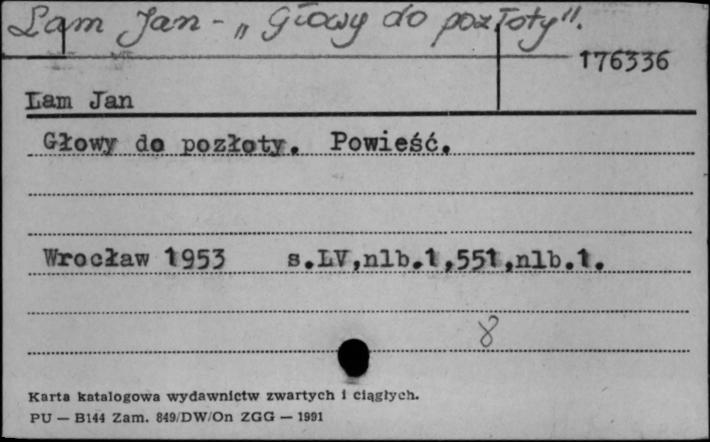 Lam Jan - „Głowy do pozłoty".
176336
Lam Jan
Głowy do pozłoty. Powieść.
Wrocław 1953 s.LV,nlb.1,551,nlb.1.
8
Karta katalogowa wydawnictw zwartych i ciągłych.
PU — B144 Zam. 849/DW/On ZGG — 1991